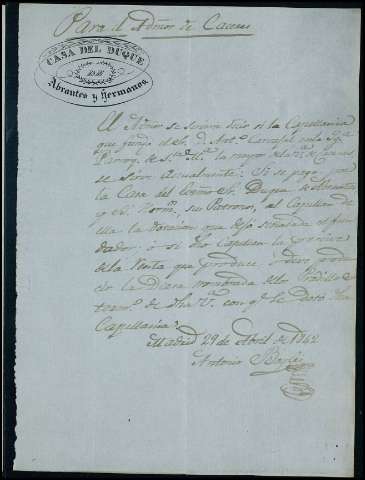 Para el Admor de Caceres
CASA DEL DUQUE
DE
Abrantes y Hermanos.
El Admor se servirá decir si la Capellania
que fundó el Sr. D. Anto. Carvajal en la Yga.
Parroq. de Sta. Ma. la mayor de la Va. de Caceres,
se sirve actualmente: Si se paga por
la Casa del Exmo Sr. Duque de Abrantes
y Sr. Herms. su Patrono, al Capellan de
ella la dotacion que dejó señalada el fun-
dador ó si dho Capellan la percive
de la Renta que produce ó debe produ-
cir la Dehesa nombrada del Pradillo
term. de dha Va. con qe. se dotó dha
Capellania.
Madrid 29 de Abril de 1842
Antonio